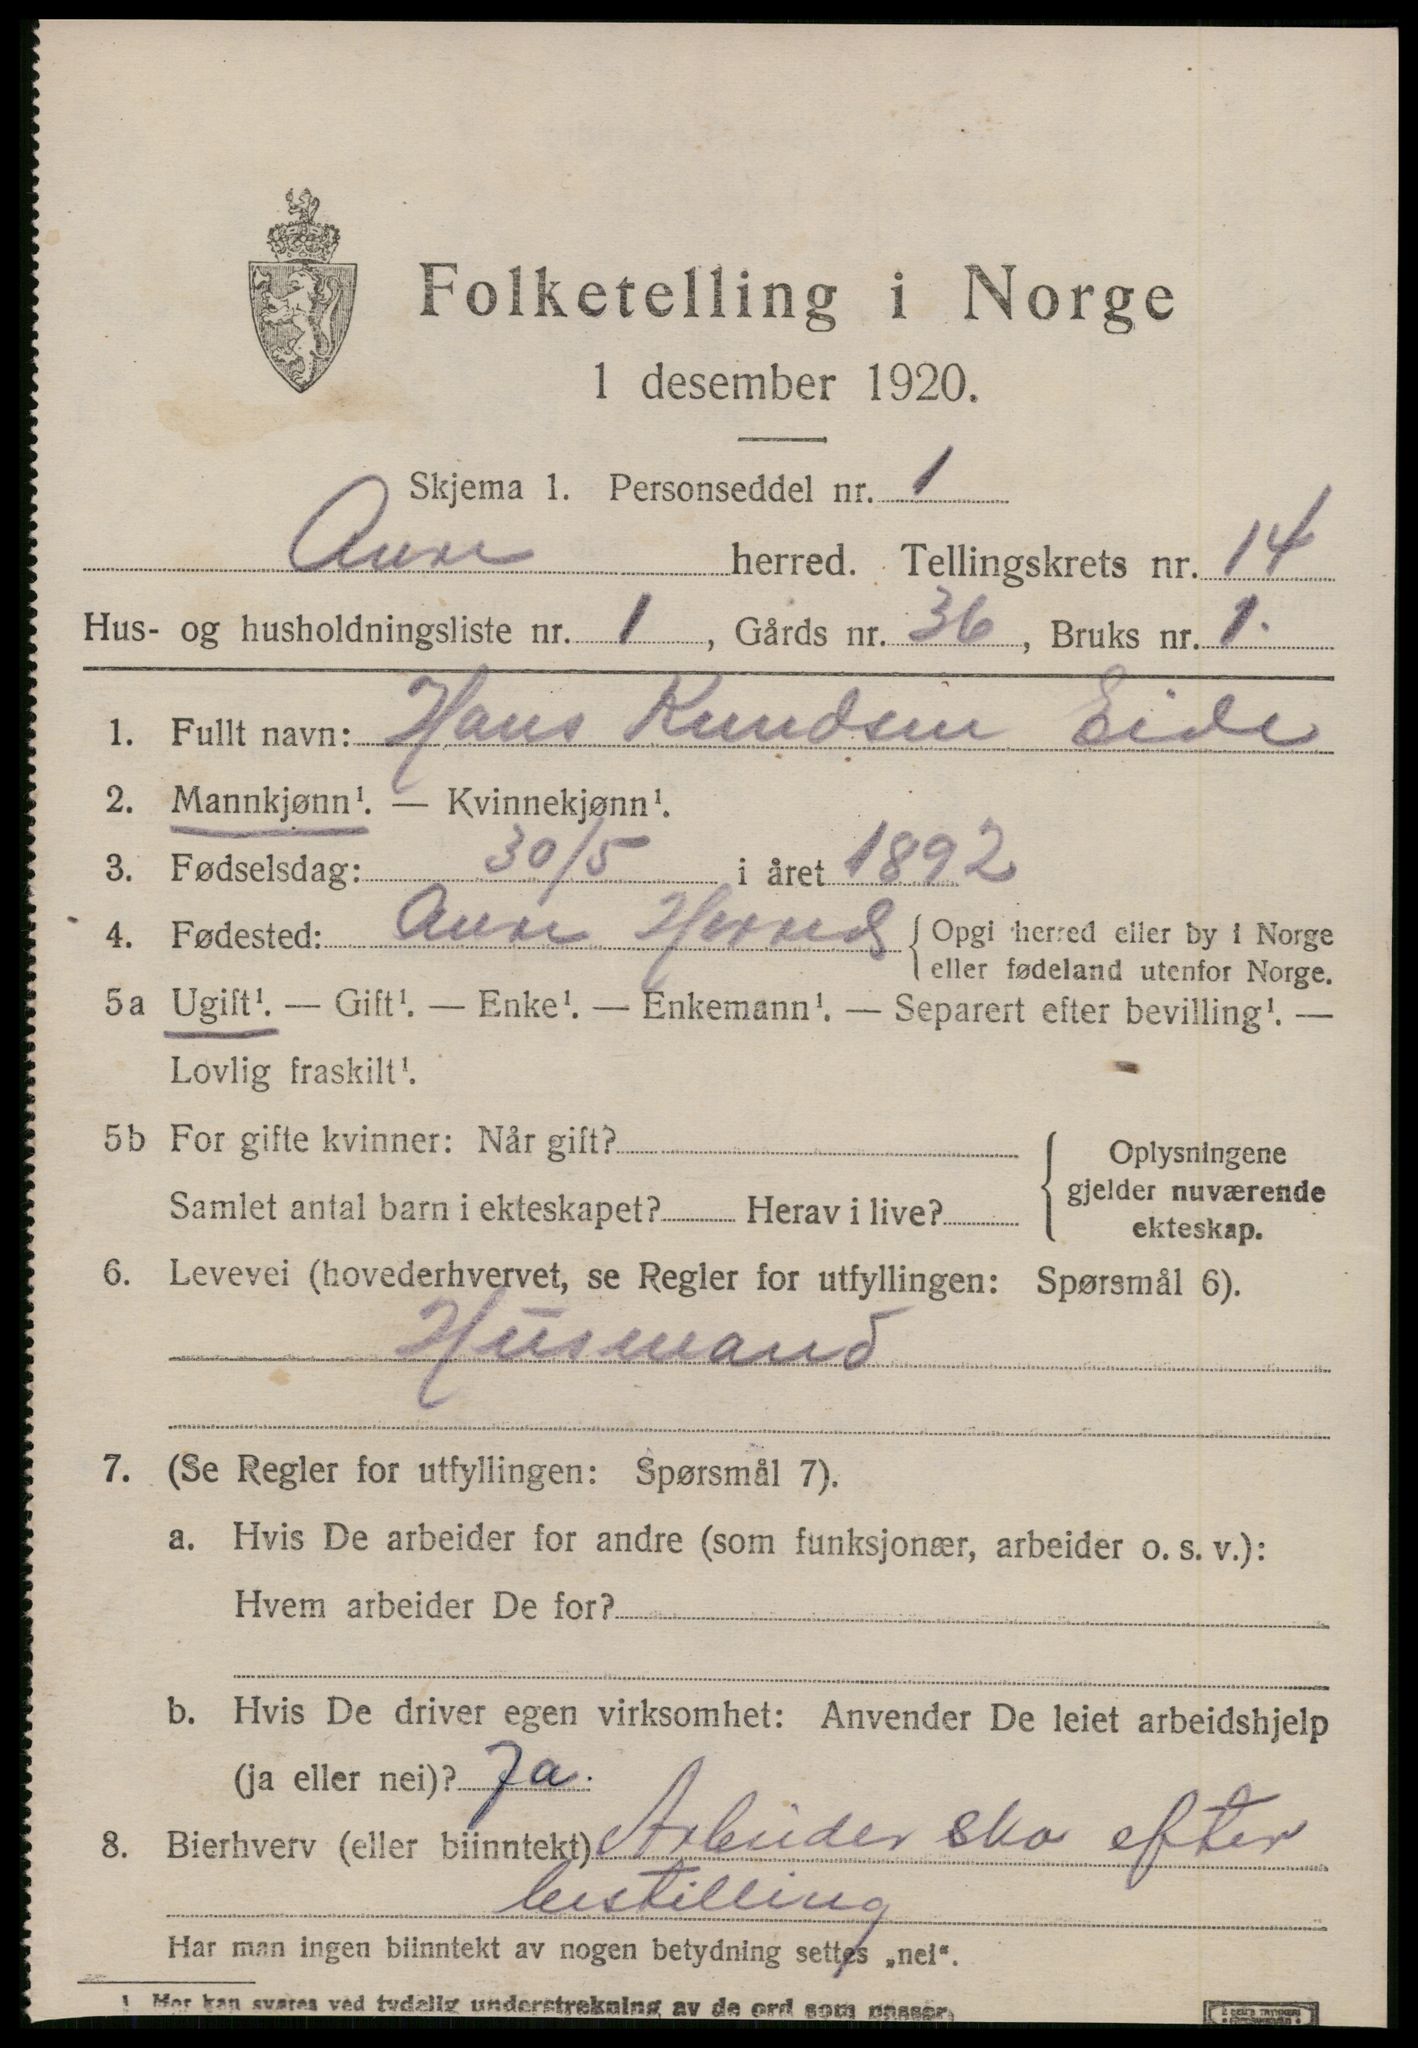 Folketelling i Norge
1 desember 1920.
Skjema 1. Personseddel nr. 1
Aure herred. Tellingskrets nr. 14
Hus- og husholdningsliste nr. 1, Gårds nr. 36, Bruks nr. 1.
1. Fullt navn: Hans Knudsen Eide
2. Mannkjønn¹. — Kvinnekjønn¹.
3. Fødselsdag: 30/5 i året 1892
4. Fødested: Aure Herred { Opgi herred eller by i Norge
eller fødeland utenfor Norge.
5a Ugift¹. — Gift¹. — Enke¹. — Enkemann¹. — Separert efter bevilling¹. —
Lovlig fraskilt¹.
5b For gifte kvinner: Når gift?
Samlet antal barn i ekteskapet? Herav i live?
{ Oplysningene
gjelder nuværende
ekteskap.
6. Levevei (hovederhvervet, se Regler for utfyllingen: Spørsmål 6).
Husmand
7. (Se Regler for utfyllingen: Spørsmål 7).
a. Hvis De arbeider for andre (som funksjonær, arbeider o. s. v.):
Hvem arbeider De for?
b. Hvis De driver egen virksomhet: Anvender De leiet arbeidshjelp
(ja eller nei)? Ja.
8. Bierhverv (eller biinntekt) Arbeider sko efter
bestilling
Har man ingen biinntekt av nogen betydning settes „nei“.
1 Her kan svares ved tydelig understrekning av de ord som passer.